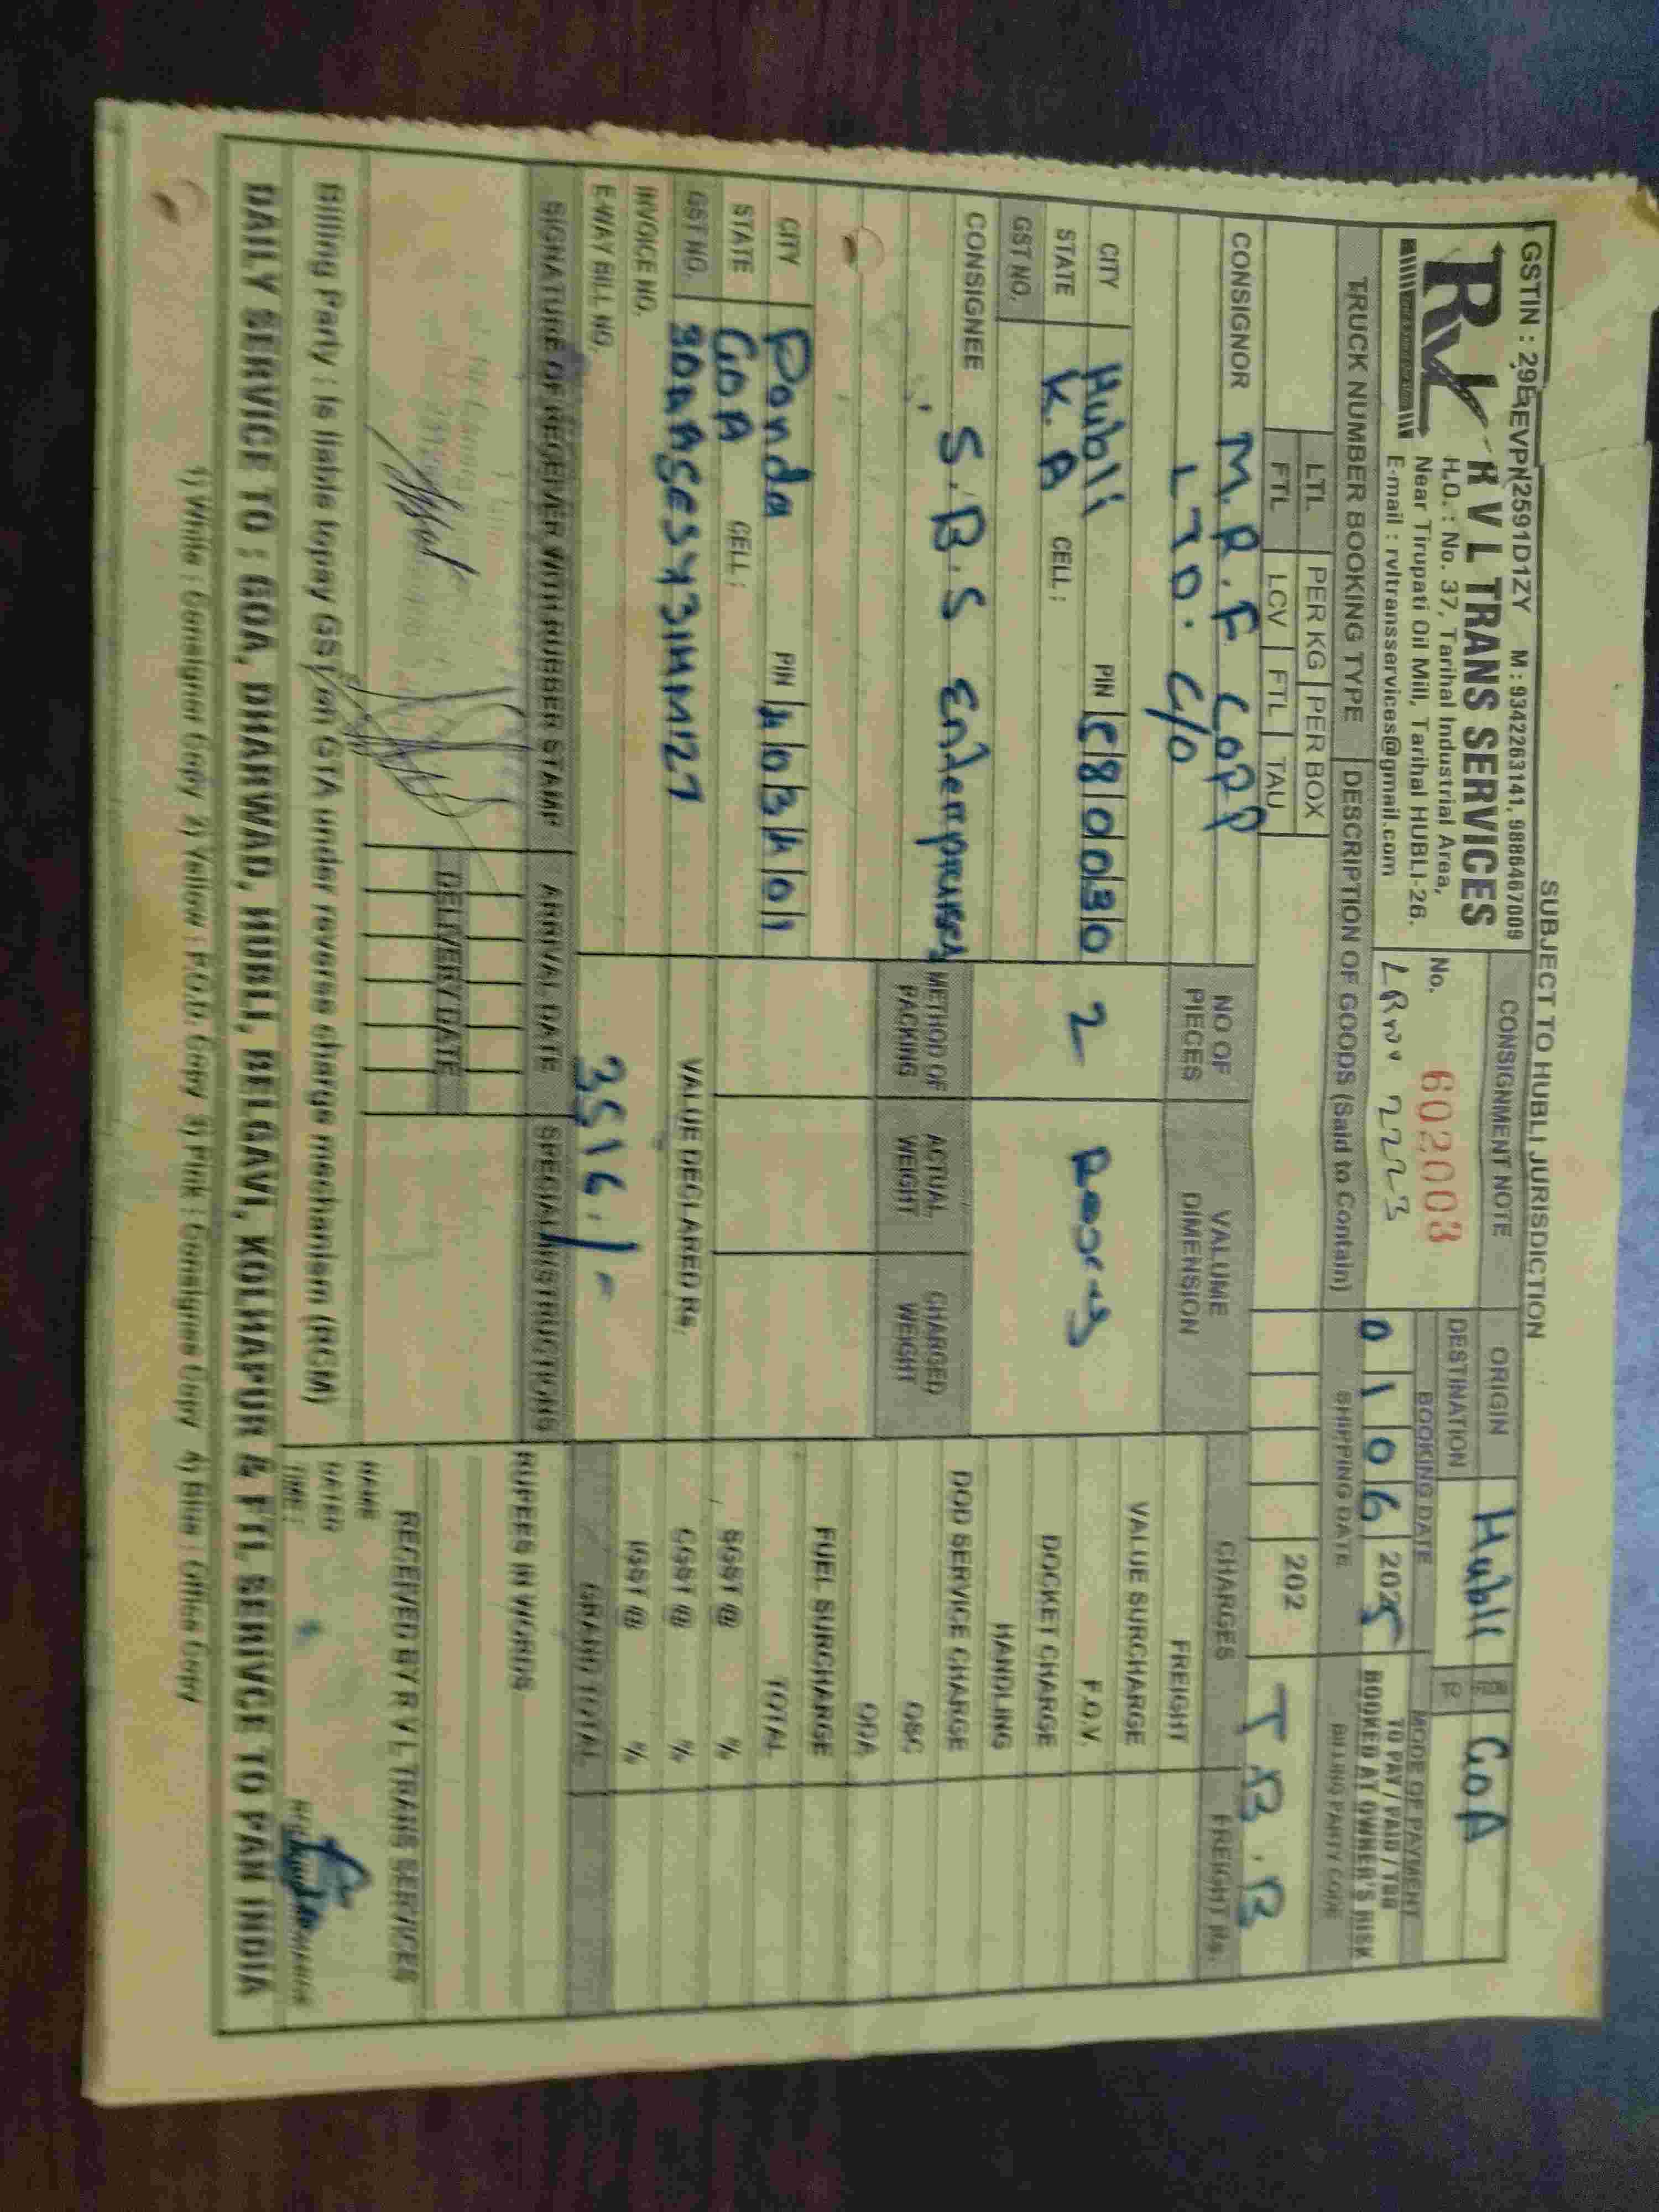 SUBJECT TO HUBLI JURISDICTION
GSTIN : 29BEVPN2591D1ZY M : 9342263141, 9886467009
R V L TRANS SERVICES
H.O. : No. 37, Tarihal Industrial Area,
Near Tirupati Oil Mill, Tarihal HUBLI-26.
E-mail : rvltransservices@gmail.com
CONSIGNMENT NOTE
No. 602003
LRno 2223
ORIGIN Hubli FROM GOA
DESTINATION TO
BOOKING DATE
0 1 0 6 2025
SHIPPING DATE
202
MODE OF PAYMENT
TO PAY / PAID / TBB
BOOKED AT OWNER'S RISK
BILLING PARTY CODE
T.B.B
TRUCK NUMBER BOOKING TYPE DESCRIPTION OF GOODS (Said to Contain)
LTL PER KG PER BOX
FTL LCV FTL TAU
CONSIGNOR M.R.F COPP
LTD. C/O
CITY Hubli PIN
STATE K.A CELL :
GST NO.
CONSIGNEE S.B.S Enterprises
CITY Ponda PIN 403401
STATE GOA CELL :
GST NO.
INVOICE NO.
E-WAY BILL NO.
NO OF PIECES VALUME DIMENSION
2
METHOD OF PACKING ACTUAL WEIGHT CHARGED WEIGHT
VALUE DECLARED Rs.
3516/-
CHARGES FREIGHT Rs.
FREIGHT
VALUE SURCHARGE
F.O.V.
DOCKET CHARGE
HANDLING
DOD SERVICE CHARGE
OSC
ODA
FUEL SURCHARGE
TOTAL
SGST @ %
CGST @ %
IGST @ %
GRAND TOTAL
RUPEES IN WORDS
SIGNATURE OF RECEIVER WITH RUBBER STAMP ARRIVAL DATE SPECIAL INSTRUCTIONS
DELIVERY DATE
RECEIVED BY R V L TRANS SERVICES
NAME
DATED
TIME :
Billing Party : is liable topay GST on GTA under reverse charge mechanism (RCM)
DAILY SERVICE TO : GOA, DHARWAD, HUBLI, BELGAVI, KOLHAPUR & FTL SERIVCE TO PAN INDIA
1) White : Consigner Copy 2) Yellow : P.O.D. Copy 3) Pink : Consignee Copy 4) Blue : Office Copy